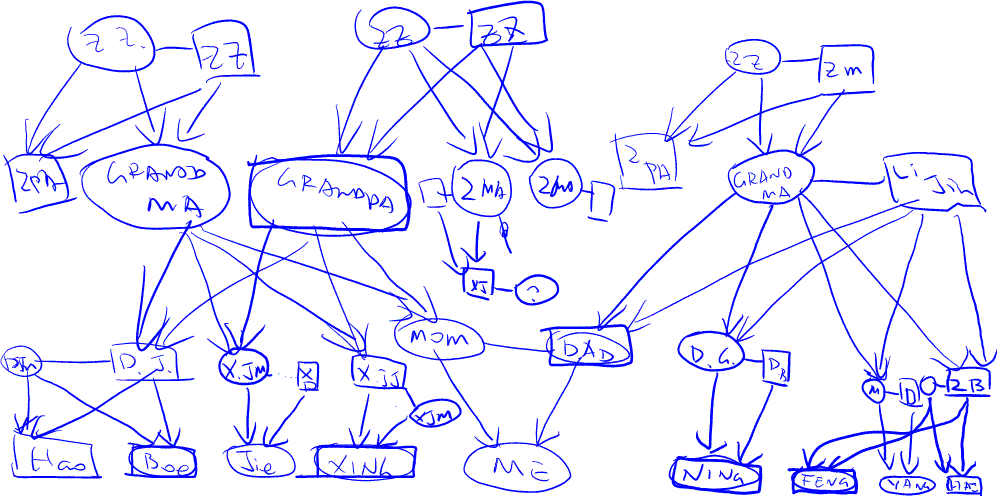 ZZ.
ZZ
ZZ
ZZ
ZZ
Zm
ZPA
GRAND
MA
GRANDPA
ZMA
ZMA
Z
PA
GRAND
MA
Li
Jin
XJ
?
D.J.
X.JM
X.JJ
MOM
DAD
D.G.
DB
M
D
ZB
XJM
Hao
Boe
Jie
XING
ME
NING
FENG
YANG